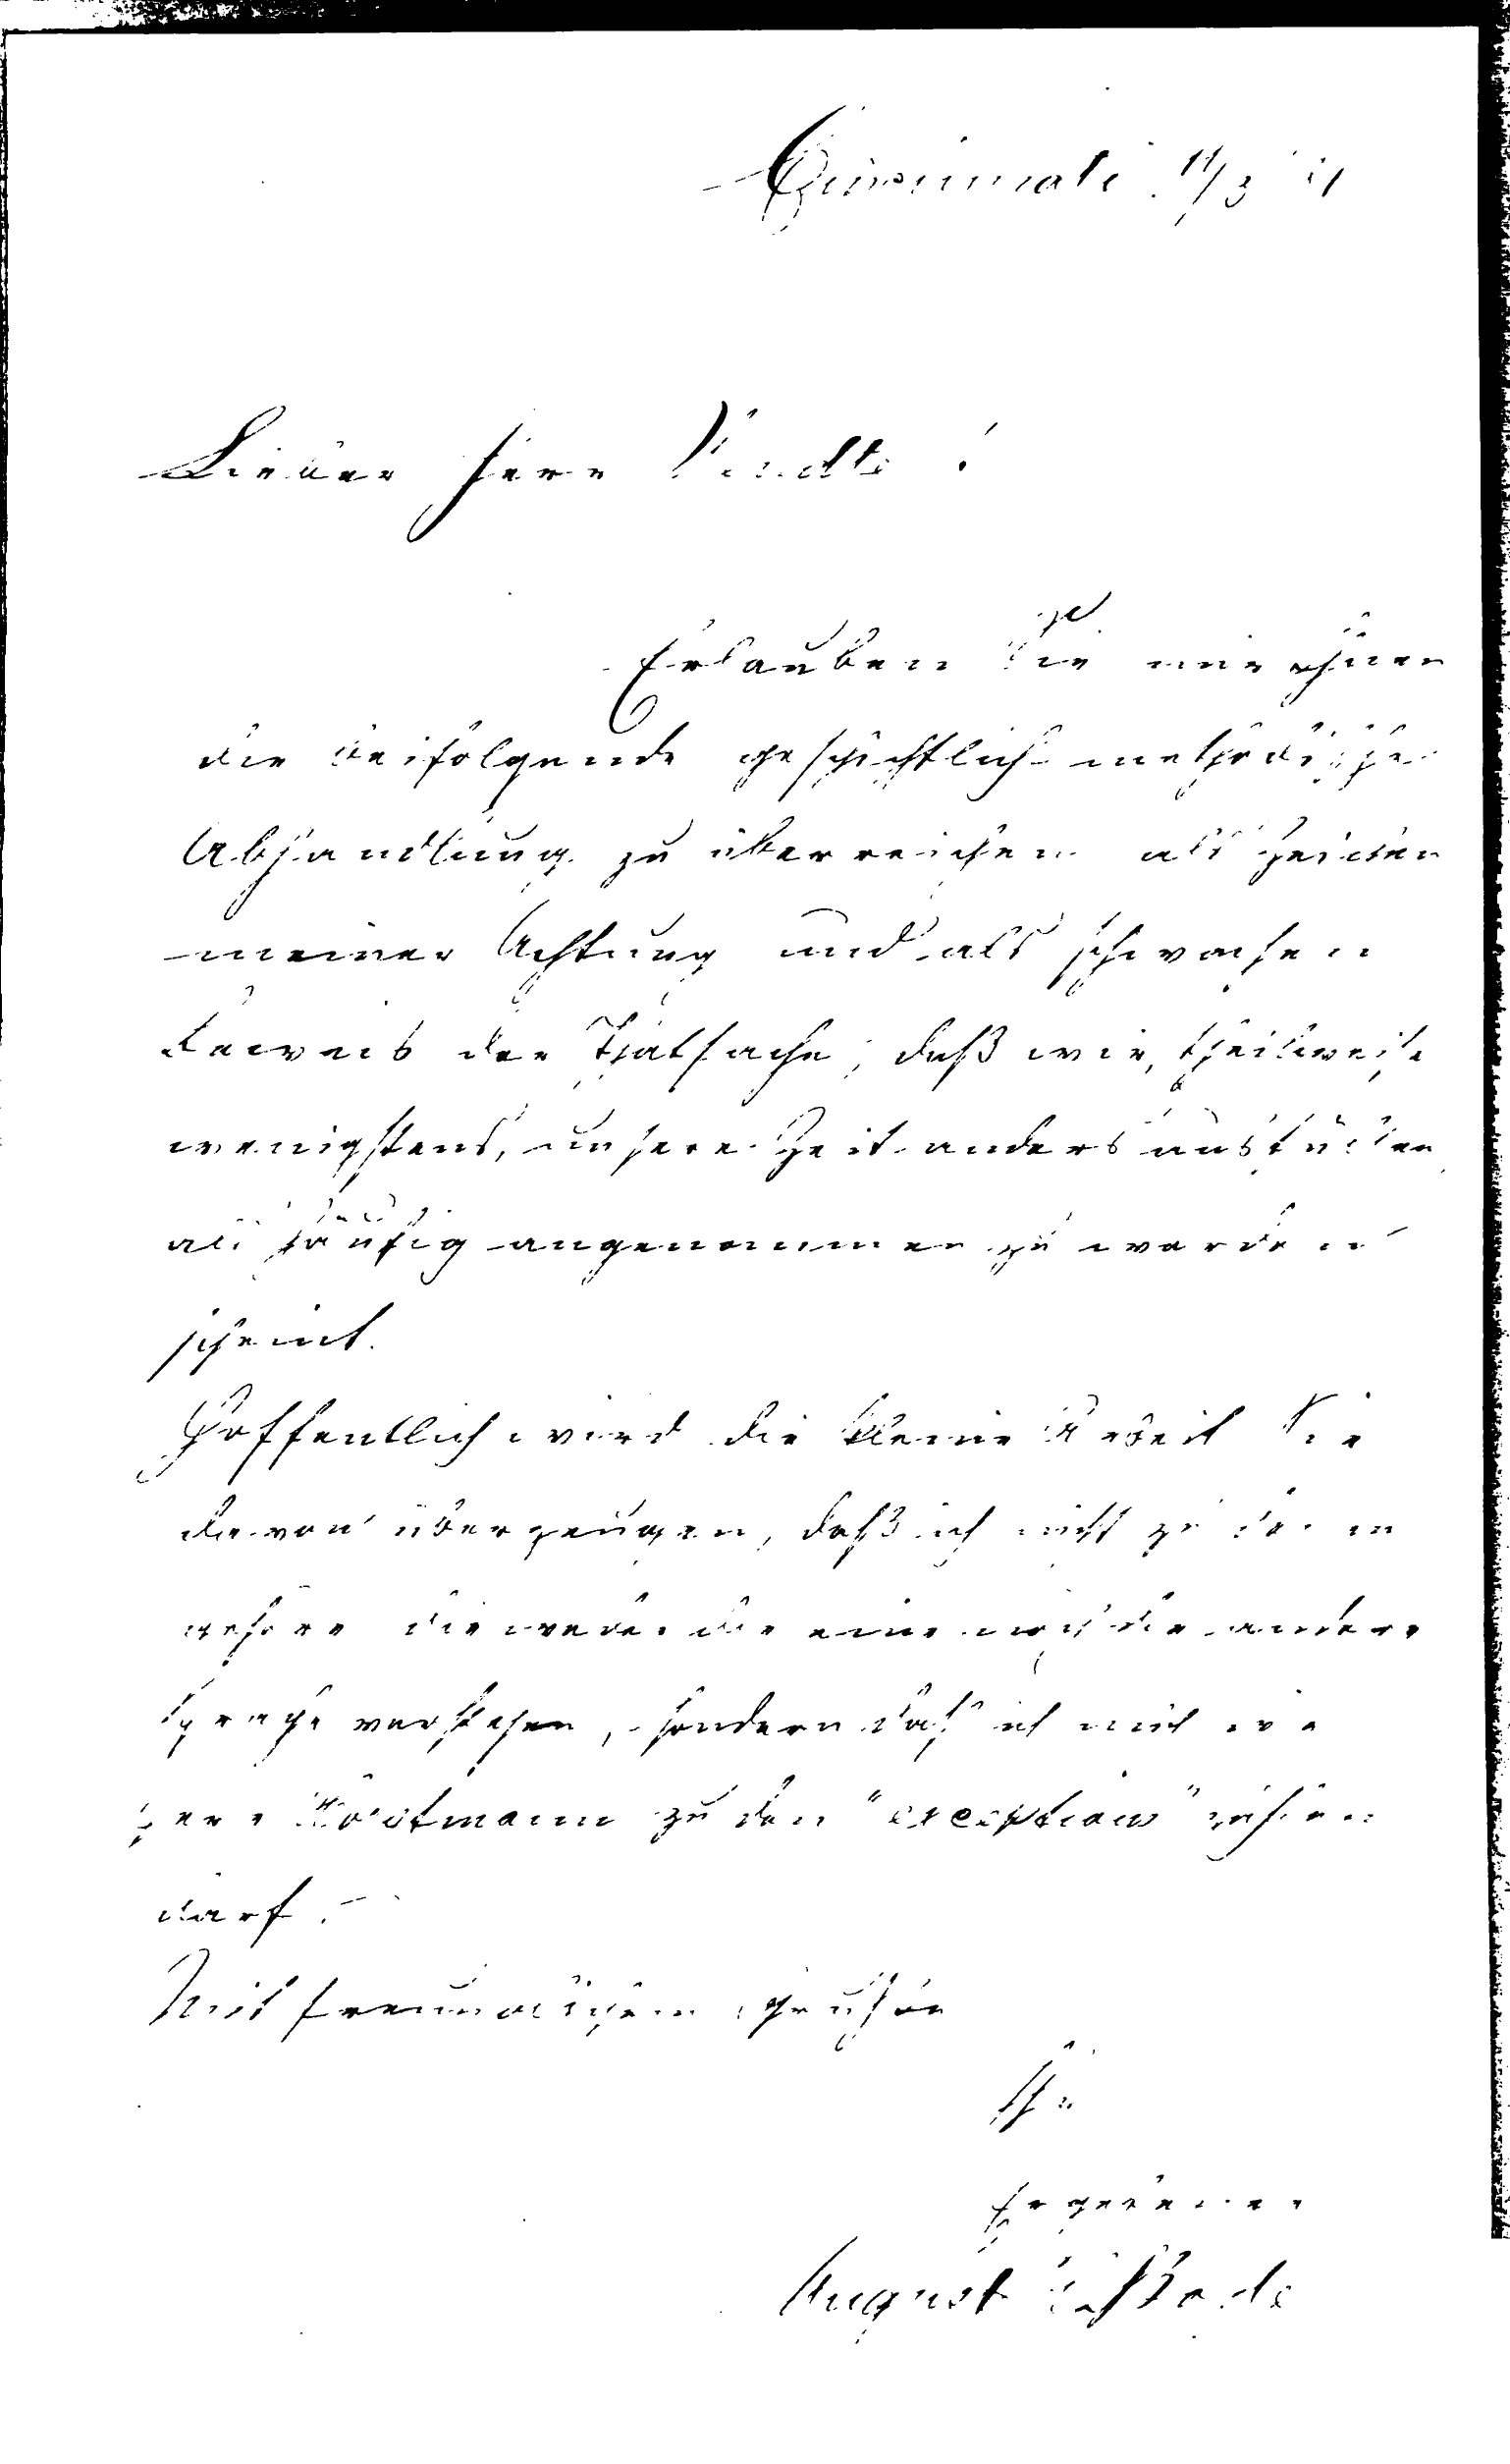 Cincinnati 11/3
Lieber Herr
Erlauben Sie mir Ihnen
die beifolgende geschichtlich-methodische
Abhandlung zu überreichen als Zeichen
meiner Achtung und als schwachen
Beweis der Thatsache, daß wir, theilweise
wenigstens, unsere Zeit anders ausfüllen
als häufig angenommen zu werden
scheint.
Hoffentlich wird die kleine Arbeit Sie
davon überzeugen, daß ich nicht zu denen
gehöre die weder die eine noch die andere
Sprache verstehen, sondern daß ich mich wie
Herr zu den "exceptions" zählen
darf.
Mit freundlichem Gruße
Ihr
Ergebener
August